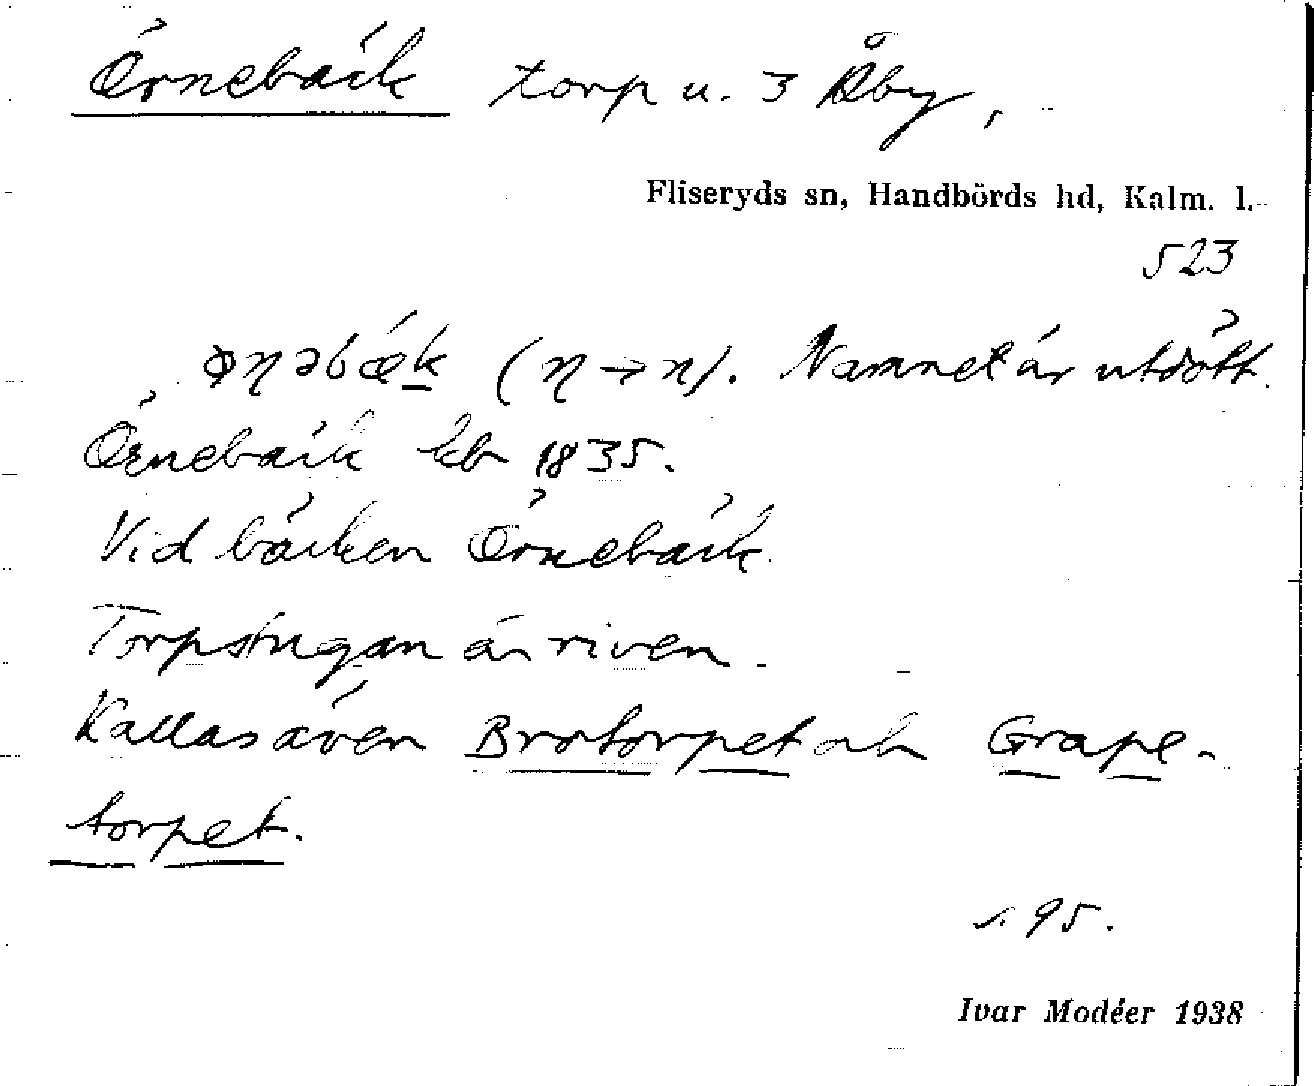 Örnebäck torp u. 3 Åby,
Fliseryds sn, Handbörds hd, Kalm. l.
523
(η → n). Namnet är utdött.
Örnebäck kb 1835.
Vid bäcken Örnebäck.
Torpstugan är riven.
Kallas även Brotorpet och Grape-
torpet.
s. 95.
Ivar Modéer 1938